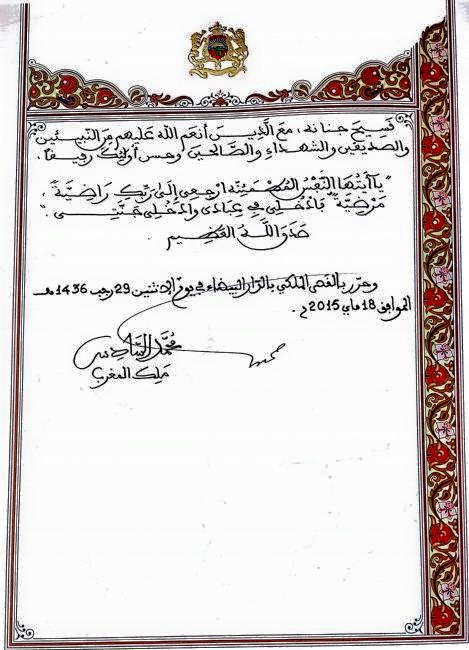 فسيح جنانه، مع الذين أنعم الله عليهم من النبيئين
والصديقين والشهداء والصالحين وحسن أولئك رفيقا.
"يا أيتها النفس المطمئنة ارجعي إلى ربك راضية
مرضية فادخلي في عبادي وادخلي جنتي".
صدق الله العظيم.
وحرر بالقصر الملكي بالدار البيضاء في يوم الاثنين 29 رجب 1436 هـ
الموافق 18 ماي 2015 م.
محمد السادس
ملك المغرب